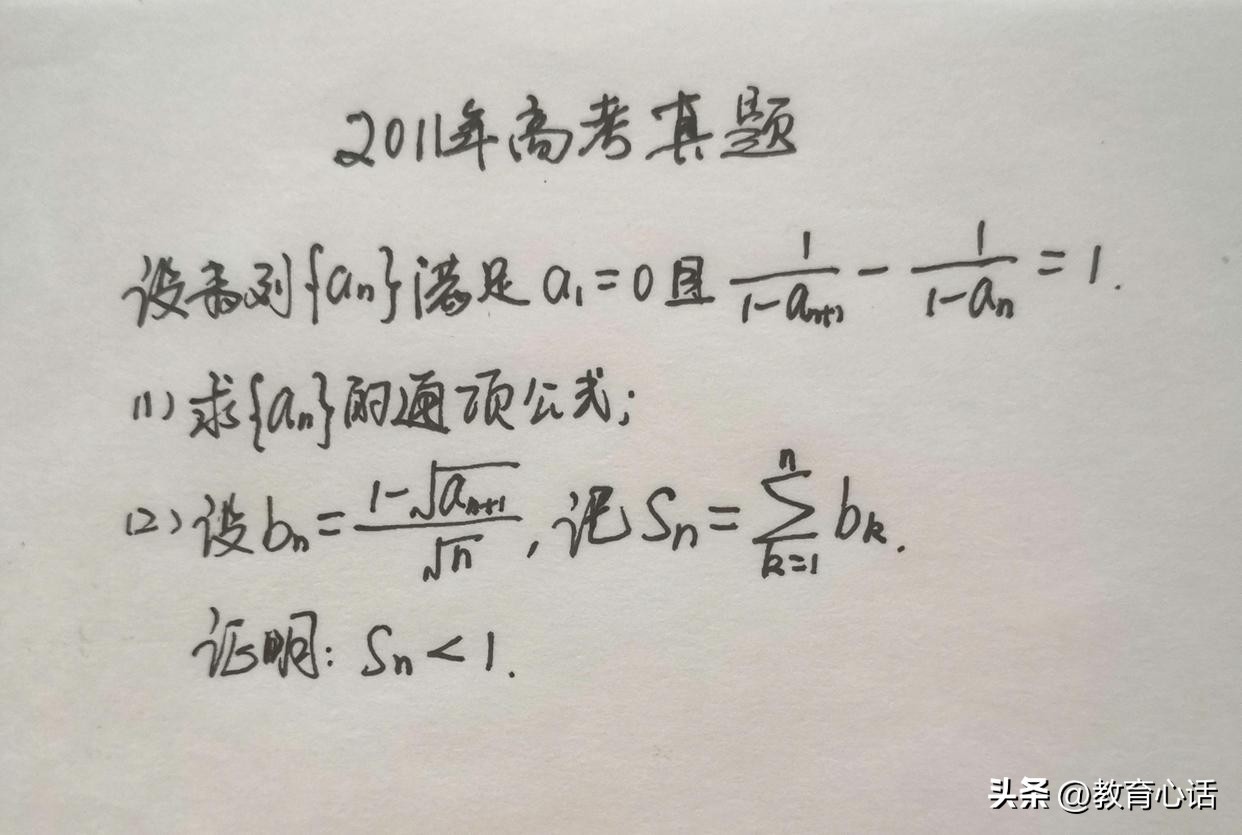 2011年高考真题
设数列{aₙ}满足 a₁=0且 1/(1-aₙ₊₁) - 1/(1-aₙ) = 1.
(1) 求{aₙ}的通项公式;
(2) 设 bₙ = (1-√aₙ₊₁)/√n, 记 Sₙ = ∑ₖ₌₁ⁿ bₖ.
证明: Sₙ < 1.
头条 @教育心话